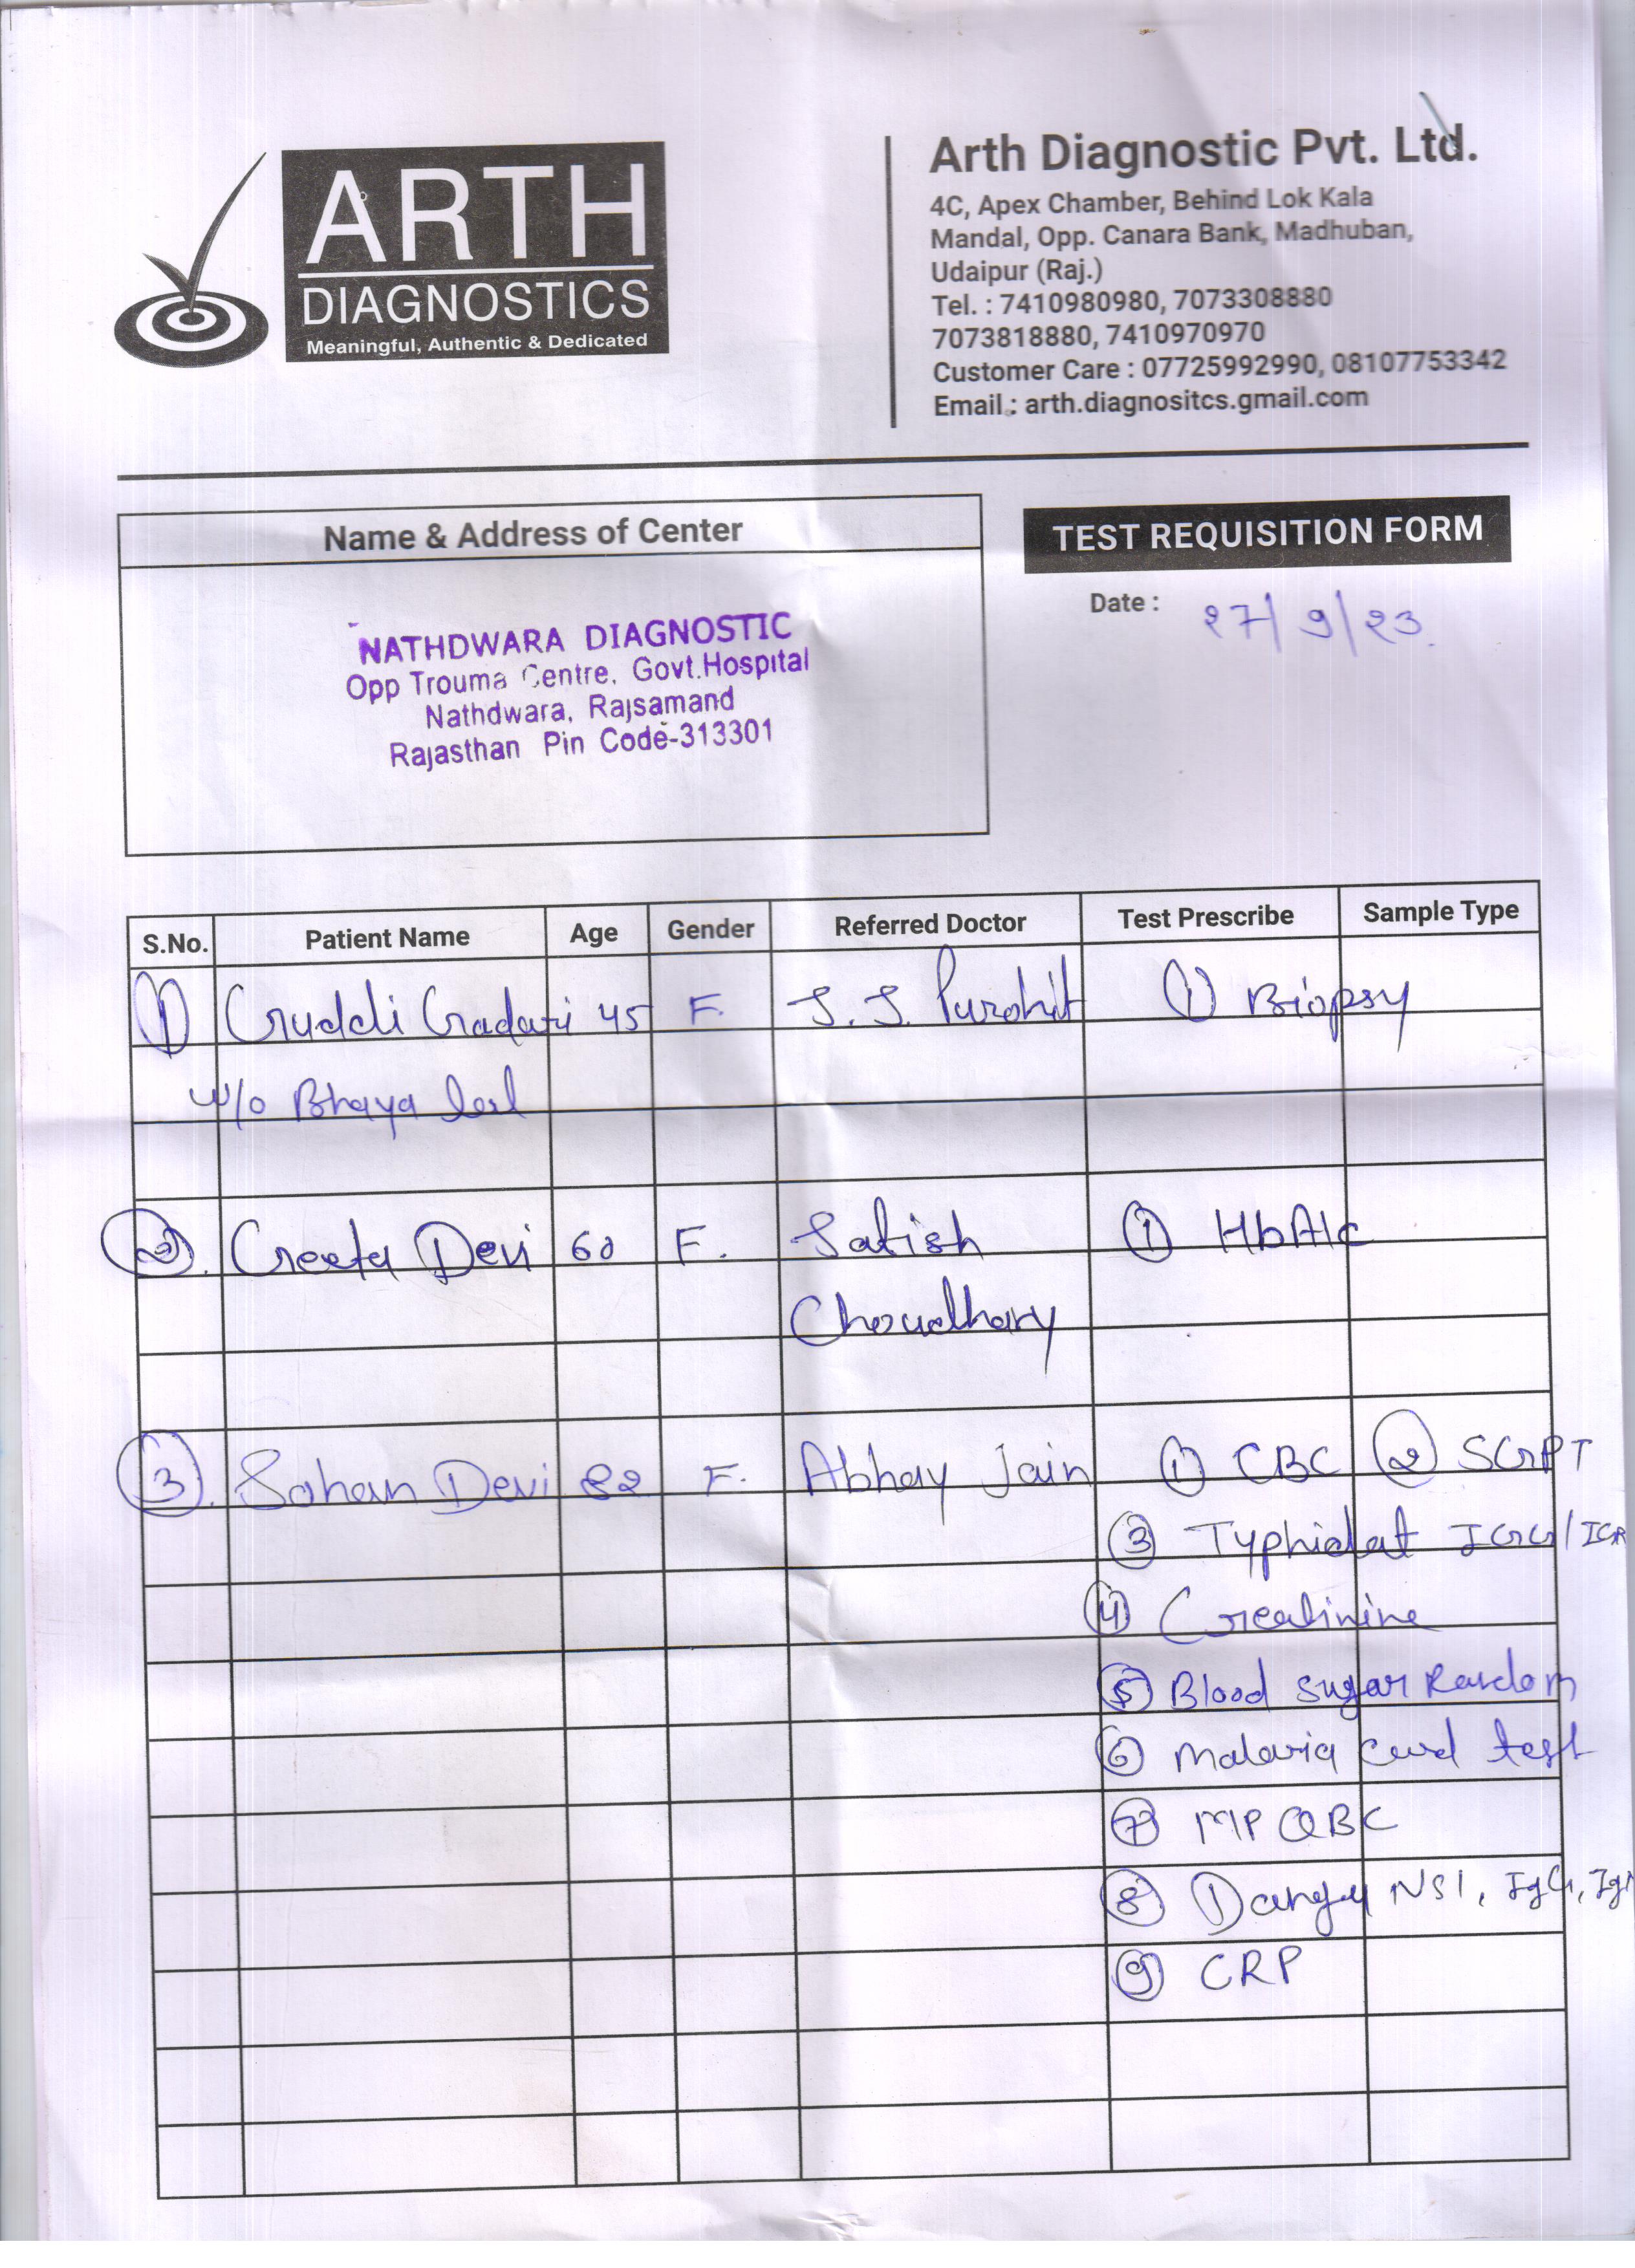 ARTH
DIAGNOSTICS
Meaningful, Authentic & Dedicated
Arth Diagnostic Pvt. Ltd.
4C, Apex Chamber, Behind Lok Kala
Mandal, Opp. Canara Bank, Madhuban,
Udaipur (Raj.)
Tel. : 7410980980, 7073308880
7073818880, 7410970970
Customer Care : 07725992990, 08107753342
Email : arth.diagnositcs.gmail.com
Name & Address of Center
NATHDWARA DIAGNOSTIC
Opp Trouma Centre, Govt.Hospital
Nathdwara, Rajsamand
Rajasthan Pin Code-313301
TEST REQUISITION FORM
Date : 27/9/23.
S.No. Patient Name Age Gender Referred Doctor Test Prescribe Sample Type
1 Guddi Gadari 45 F. S. S. Purohit 1 Biopsy
w/o Bhaya lal
2. Geeta Devi 60 F. Satish 1 HbA1c
Choudhary
3. Sohan Devi 82 F. Abhay Jain 1 CBC 2 SGPT
3 Typhidot IGG/
4 Creatinine
5 Blood sugar Random
6 Malaria Card test
7 MP QBC
8 NS1, IgG,
9 CRP